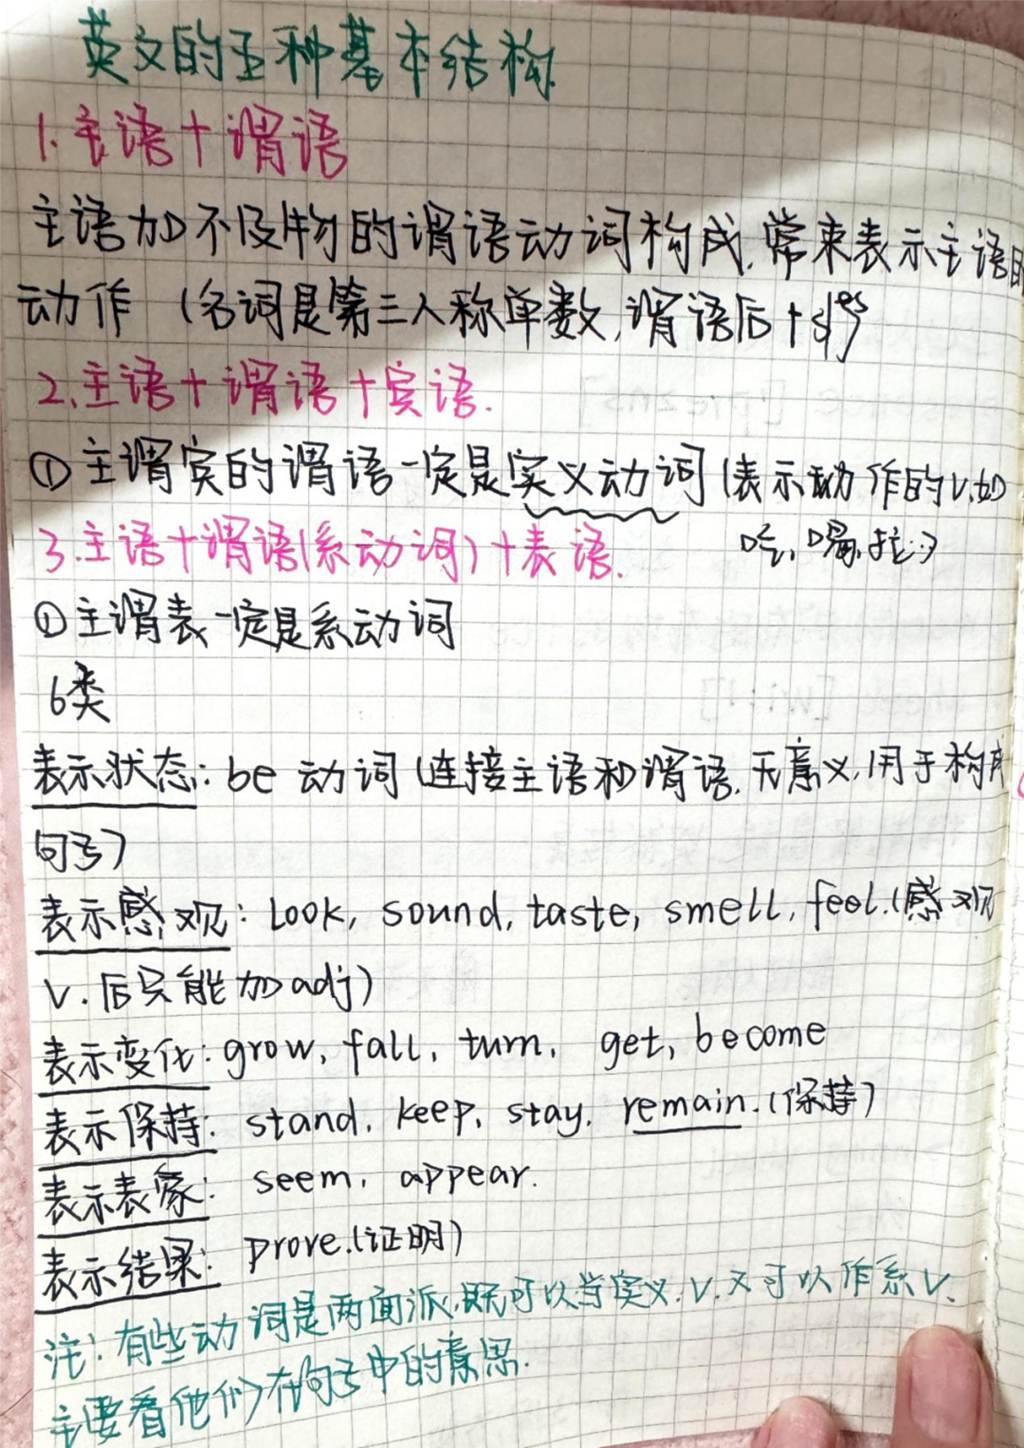 英文的五种基本结构
1.主语+谓语
主语加不及物的谓语动词构成,常来表示主语的
动作 (名词是第三人称单数,谓语后+s/es)
2.主语+谓语+宾语.
①主谓宾的谓语一定是实义动词(表示动作的v.如
吃,喝,拉..)
3.主语+谓语(系动词)+表语.
①主谓表一定是系动词
6类
表示状态: be 动词(连接主语和谓语.无意义,用于构成
句子)
表示感观: Look, sound, taste, smell, feel.(感观
V.后只能加adj)
表示变化: grow, fall, turn, get, become
表示保持: stand, keep, stay, remain.(保持)
表示表象: seem, appear.
表示结果: prove.(证明)
注: 有些动词是两面派,既可以当实义.V.又可以作系V.
主要看他们在句子中的意思.